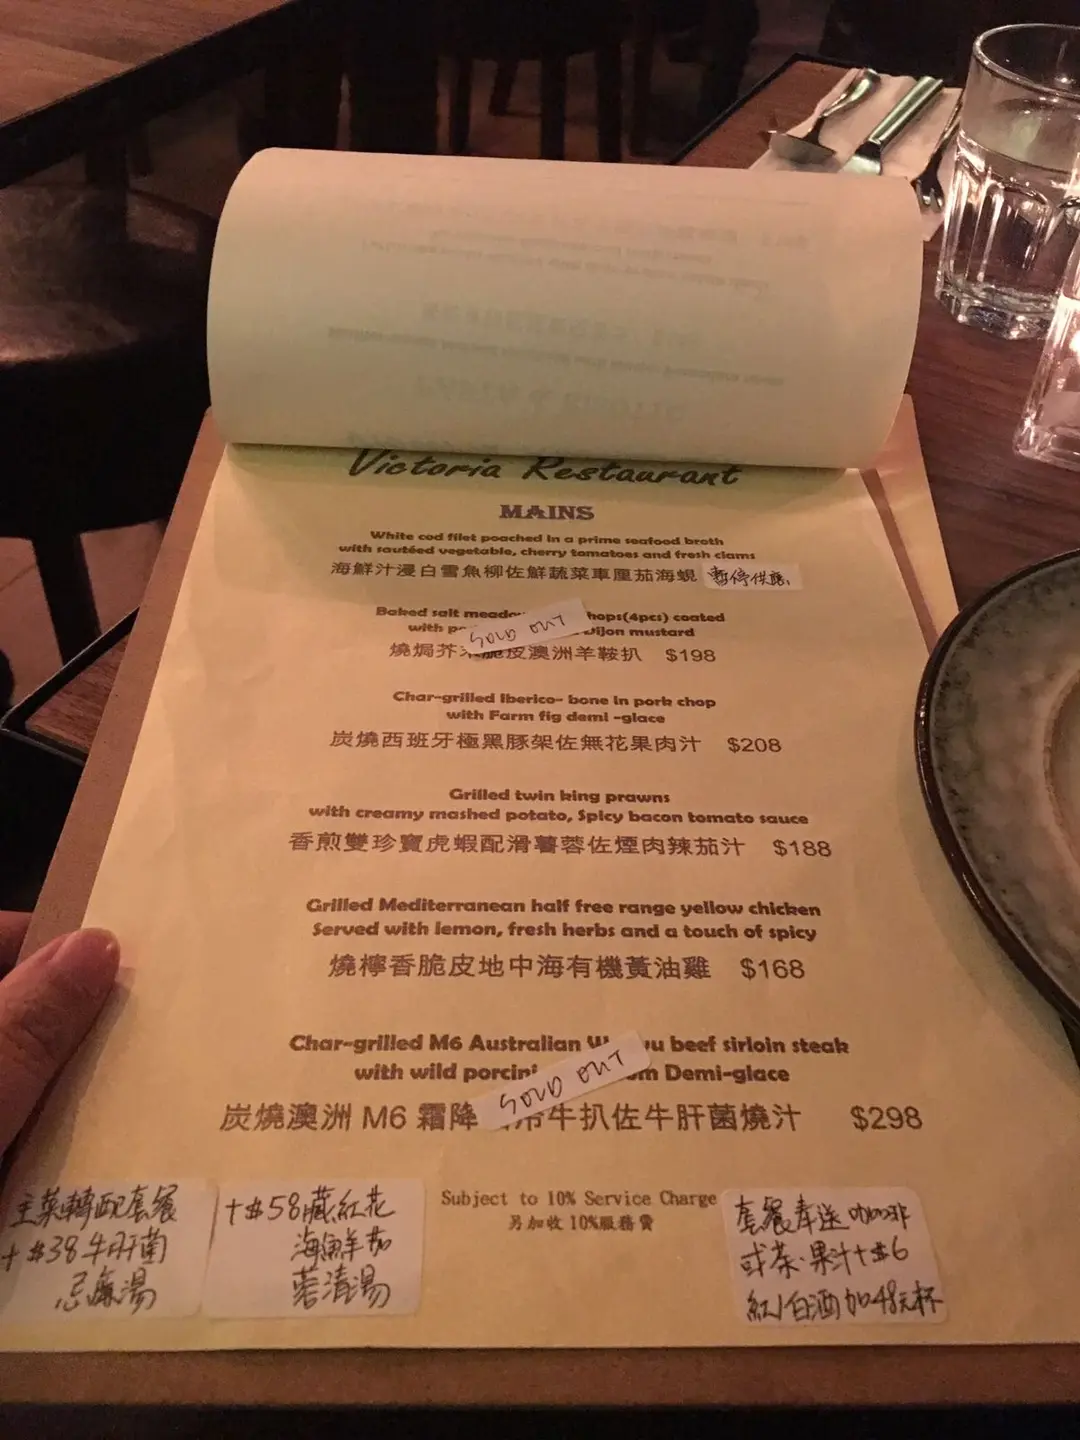 Victoria Restaurant
MAINS
White cod filet poached in a prime seafood broth
with sautéed vegetable, cherry tomatoes and fresh clams
海鮮汁浸白雪魚柳佐鮮蔬菜車厘茄海蜆 暫停供應
Baked salt meadow hops(4pcs) coated
with Dijon mustard
SOLD OUT
燒焗芥末脆皮澳洲羊鞍扒 $198
Char-grilled Iberico- bone in pork chop
with Farm fig demi -glace
炭燒西班牙極黑豚架佐無花果肉汁 $208
Grilled twin king prawns
with creamy mashed potato, Spicy bacon tomato sauce
香煎雙珍寶虎蝦配滑薯蓉佐煙肉辣茄汁 $188
Grilled Mediterranean half free range yellow chicken
Served with lemon, fresh herbs and a touch of spicy
燒檸香脆皮地中海有機黃油雞 $168
Char-grilled M6 Australian W yu beef sirloin steak
with wild porcini om Demi-glace
SOLD OUT
炭燒澳洲 M6 霜降 冷牛扒佐牛肝菌燒汁 $298
主菜轉配套餐
+$38 牛肝菌
忌廉湯
+$58 藏紅花
海鮮茄
蓉清湯
Subject to 10% Service Charge
另加收 10%服務費
套餐奉送咖啡
或茶·果汁+$6
紅/白酒加48元杯